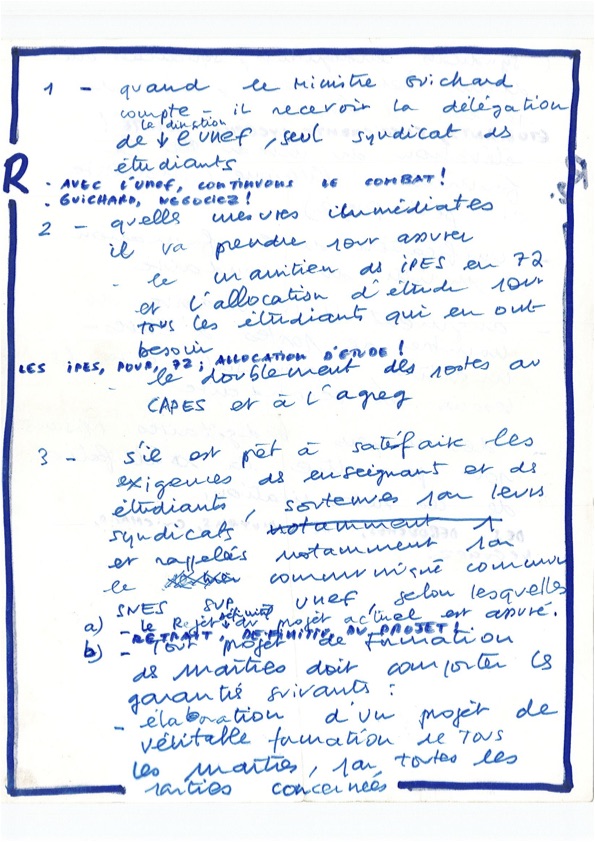 1 - quand le Ministre Guichard
compte-il recevoir la délégation
la direction
de l'unef, seul syndicat ds
étudiants
R
- AVEC L'UNEF, CONTINUONS LE COMBAT!
- GUICHARD, NEGOCIEZ!
2 - quelles mesures immédiates
il va prendre pour assurer
- le maintien ds IPES en 72
et l'allocation d'étude pour
tous les étudiants qui en ont
besoin
LES IPES, POUR, 72; ALLOCATION D'ETUDE!
le doublement des postes au
CAPES et à l'agreg
3 - s'il est prêt à satisfaire les
exigences ds enseignant et ds
étudiants, soutenues par leurs
syndicats notamment p
et rappelées notamment par
le communiqué commun
SNES SUP UNEF, selon lesquelles
a) - le Rejet du projet actuel est assuré.
- RETRAIT, DEFINITIF, DU PROJET!
b) - Tout projet de Formation
ds maîtres doit comporter ls
garanties suivantes :
- élaboration d'un projet de
véritable formation de Tous
les maîtres, par toutes les
parties concernées